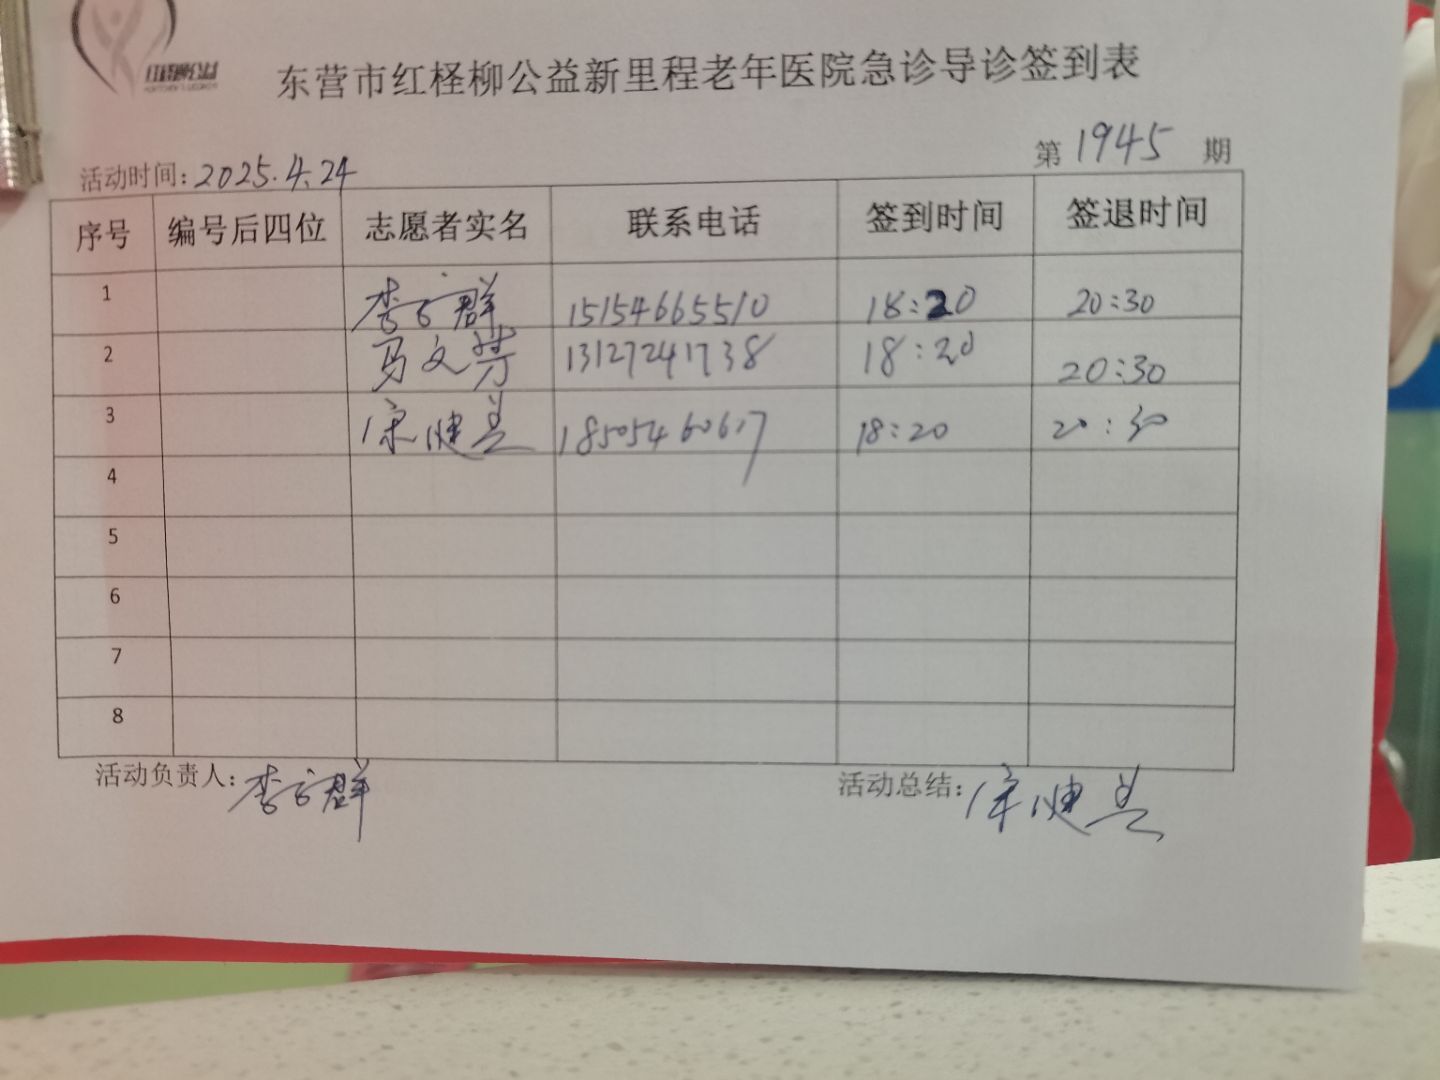 东营市红柽柳公益新里程老年医院急诊导诊签到表
活动时间：2025.4.24 第 1945 期
序号 编号后四位 志愿者实名 联系电话 签到时间 签退时间
1 李 群 15154665510 18:20 20:30
2 马文芳 13127241738 18:20 20:30
3 宋健 18:20 20:30
4
5
6
7
8
活动负责人：李 群 活动总结：宋健